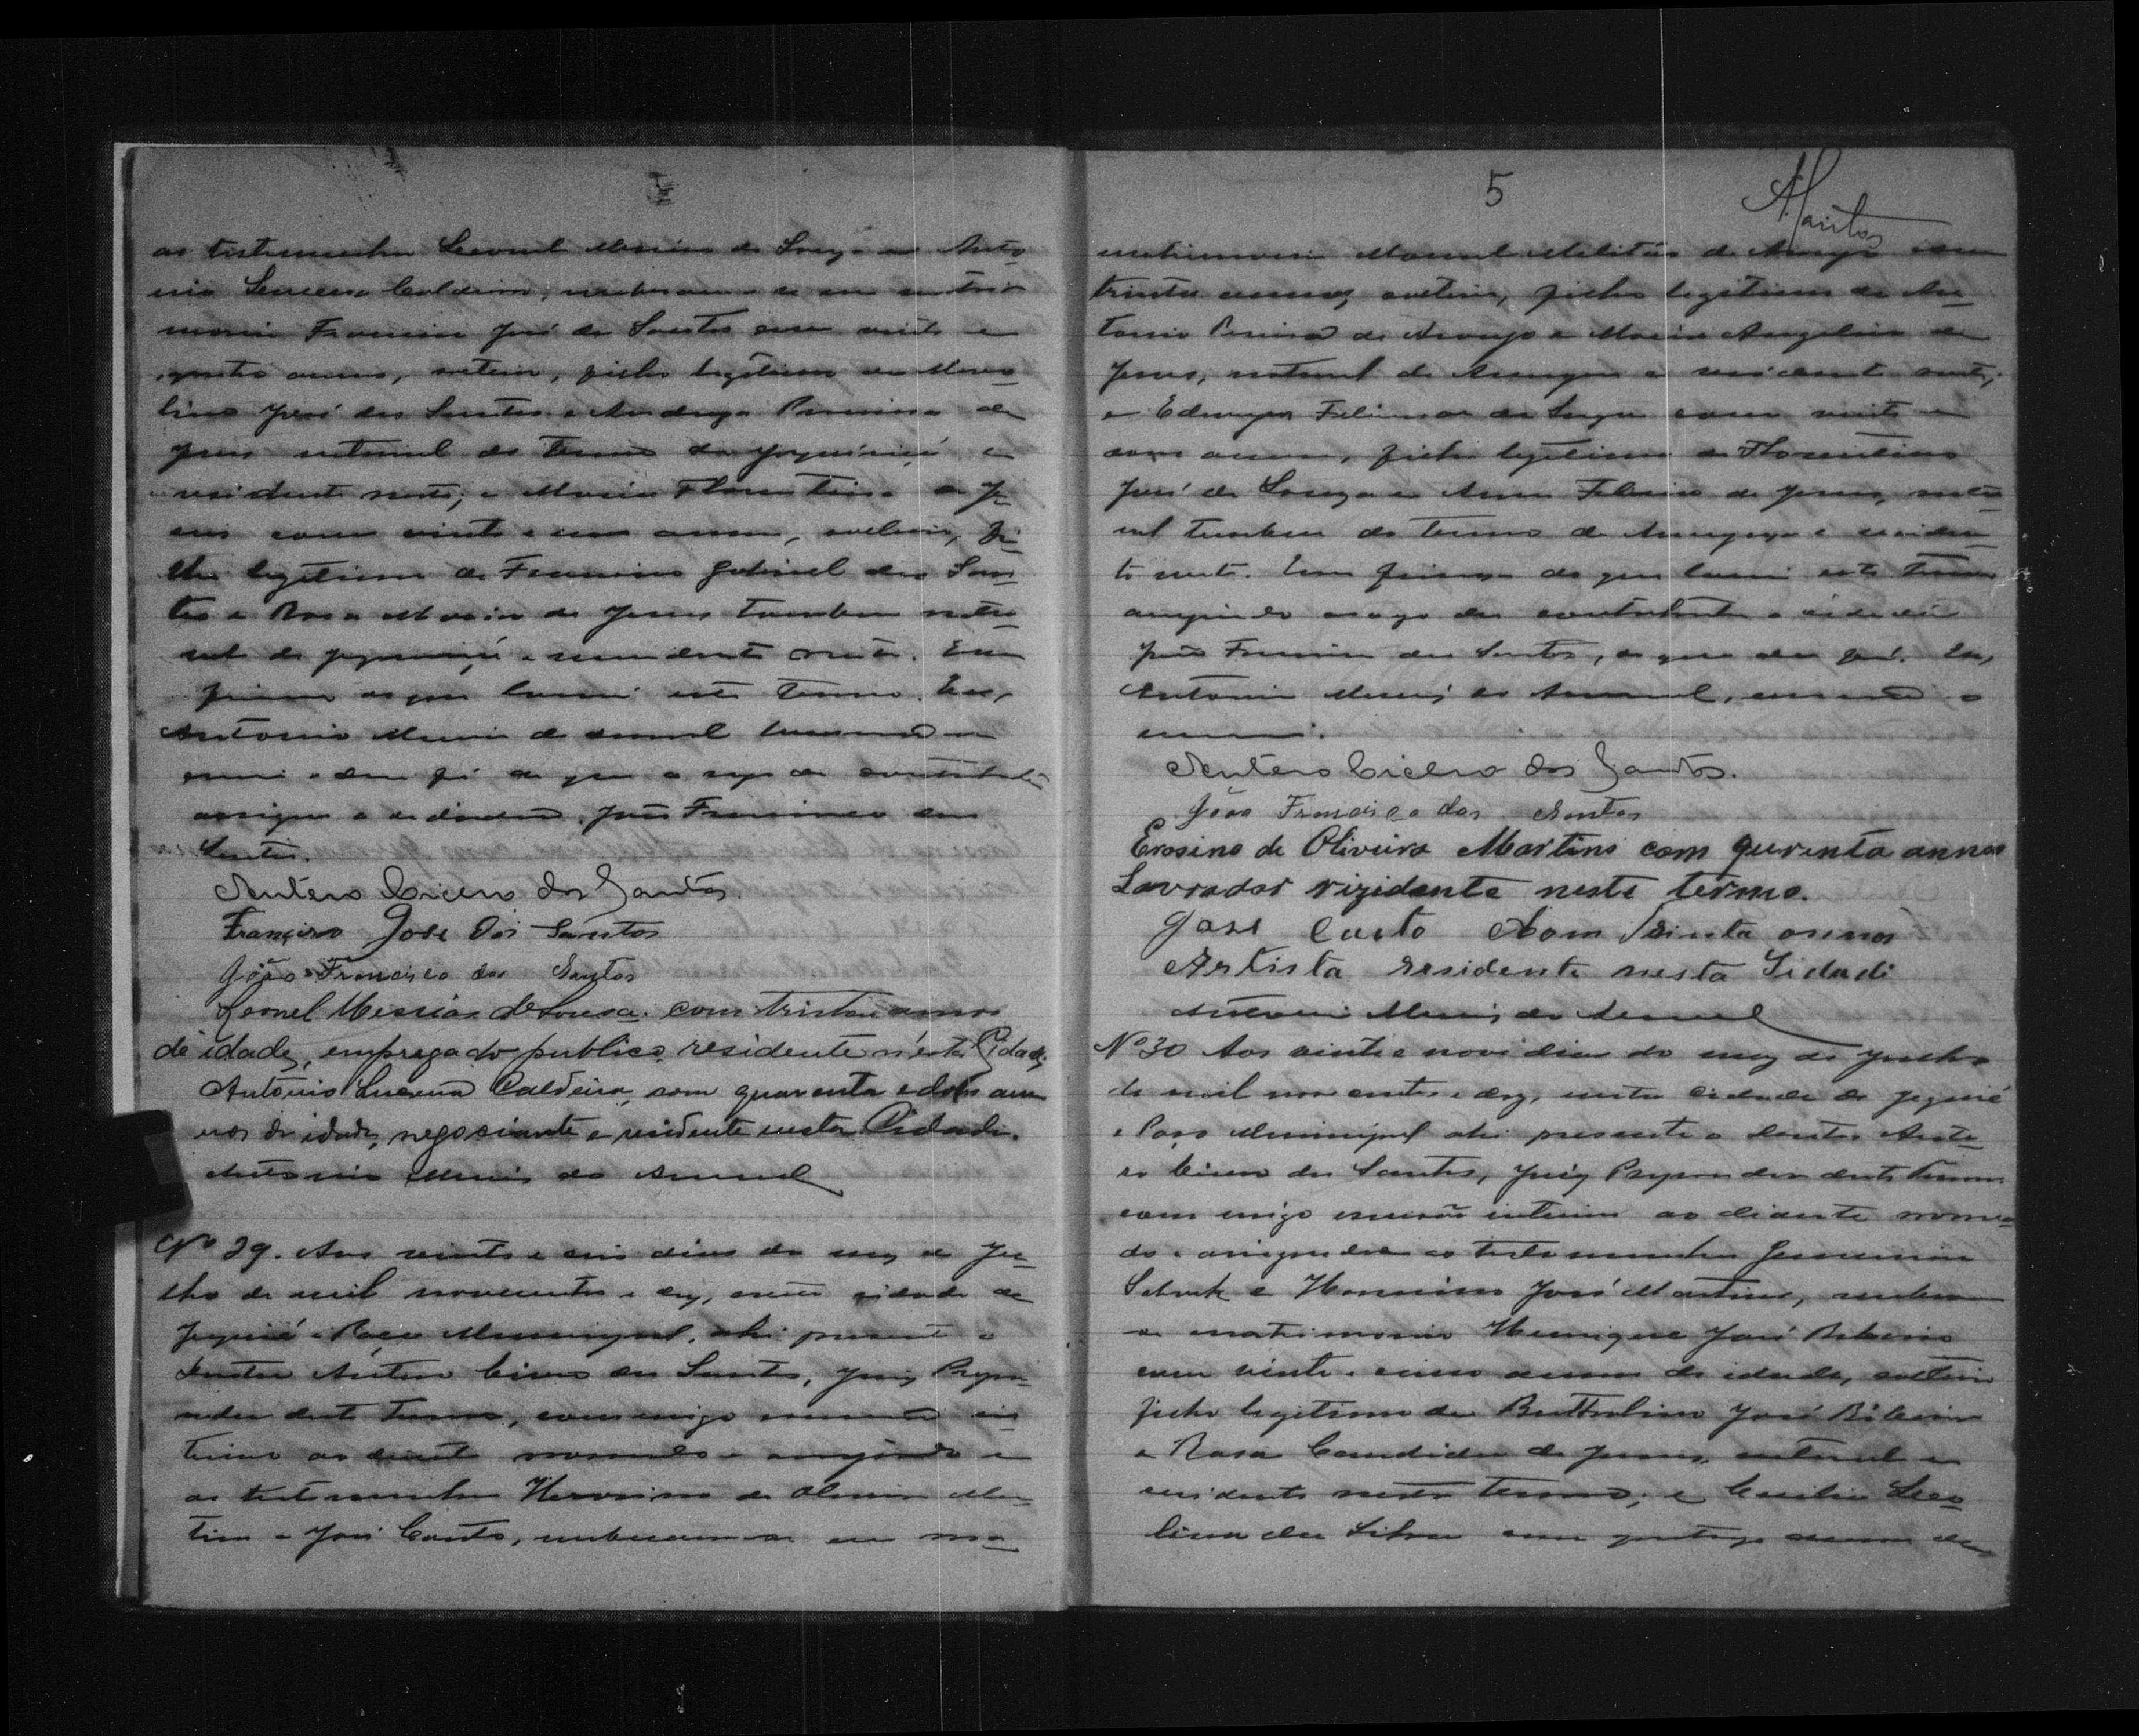 as testemunhas Leonel Messias de Souza e Anto-
nio Lucena Caldeira, receberam-se em matri-
monio Francisco José dos Santos com vinte e
quatro annos, solteiro, filho legitimo de Marco-
lino José dos Santos e Andreza Perreira de
Jesus natural do termo de e
residente neste; e Maria Florentina de Je-
sus com vinte e um annos, solteira, fi-
lha legitima de Francisco Gabriel dos San-
tos e Rosa Maria de Jesus tambem natu-
ral de e residente neste. Em
firmeza do que lavrei este termo. Eu,
Antonio Muniz do Amaral escrivão
escrevi e dou fé de que a rogo da contrahente
assigna o cidadão João Francisco dos
Santos.
Antero Cicero dos Santos.
Francisco José dos Santos
João Francisco dos Santos
Leonel Messias de Sousa. com trinta annos
de idade, empregado publico, residente n'esta Cidade
Antonio Lucena Caldeira, com quarenta e dois ann
nos de idade, negociante e residente nesta Cidade.
Antonio Muniz do Amaral
Nº 29. Aos vinte e seis dias do mez de Ju-
lho de mil novecentos e dez, nesta cidade de
Jequié e Paço Municipal, ahi presente o
Doutor Antero Cicero dos Santos, Juiz Prepa-
rador deste Termo, commigo escrivão in-
terino ao diante nomeado e assignado e
as testemunhas Herosino de Oliveira Mar-
tins e José Couto, receberam-se em ma-
5
ASantos
matrimonio Manoel Militão de Araujo com
trinta annos, solteiro, filho legitimo de An-
tonio Pereira de Araujo e Maria Angelina de
Jesus, natural de e residente neste;
e Feliciana de Souza com vinte e
dois annos, filha legitima de Florentino
José de Souza e Anna Felicia de Jesus, natu-
ral tambem do termo de e residen-
te neste. Em firmeza do que lavrei este termo
assignando a rogo dos contrahentes o cidadão
João Francisco dos Santos, do que dou fé. Eu,
Antonio Muniz do Amaral, escrivão o
escrevi.
Antero Cicero dos Santos.
João Francisco dos Santos
Erosino de Oliveira Martins com qurenta annos
Lavrador rizidente neste termo.
Jose Couto Com trinta annos
Artista residente nesta Sidade
Antonio Muniz do Amaral
Nº 30 Aos vinte e nove dias do mez de Julho
de mil nove centos e dez, nesta cidade de Jequié
e Paço Municipal ahi presente o Doutor Ante-
ro Cicero dos Santos, Juiz Preparador deste Termo
commigo escrivão interino ao diante nomea-
do e assignado e as testemunhas
e José Martins, receberam
se matrimonio Henrique José Ribeiro
com vinte e cinco annos de idade, solteiro
filho legitimo de José Ribeiro
e Rosa Candida de Jesus, natural e
residente neste termo; e Leo-
lina da Silva com quatorze annos de